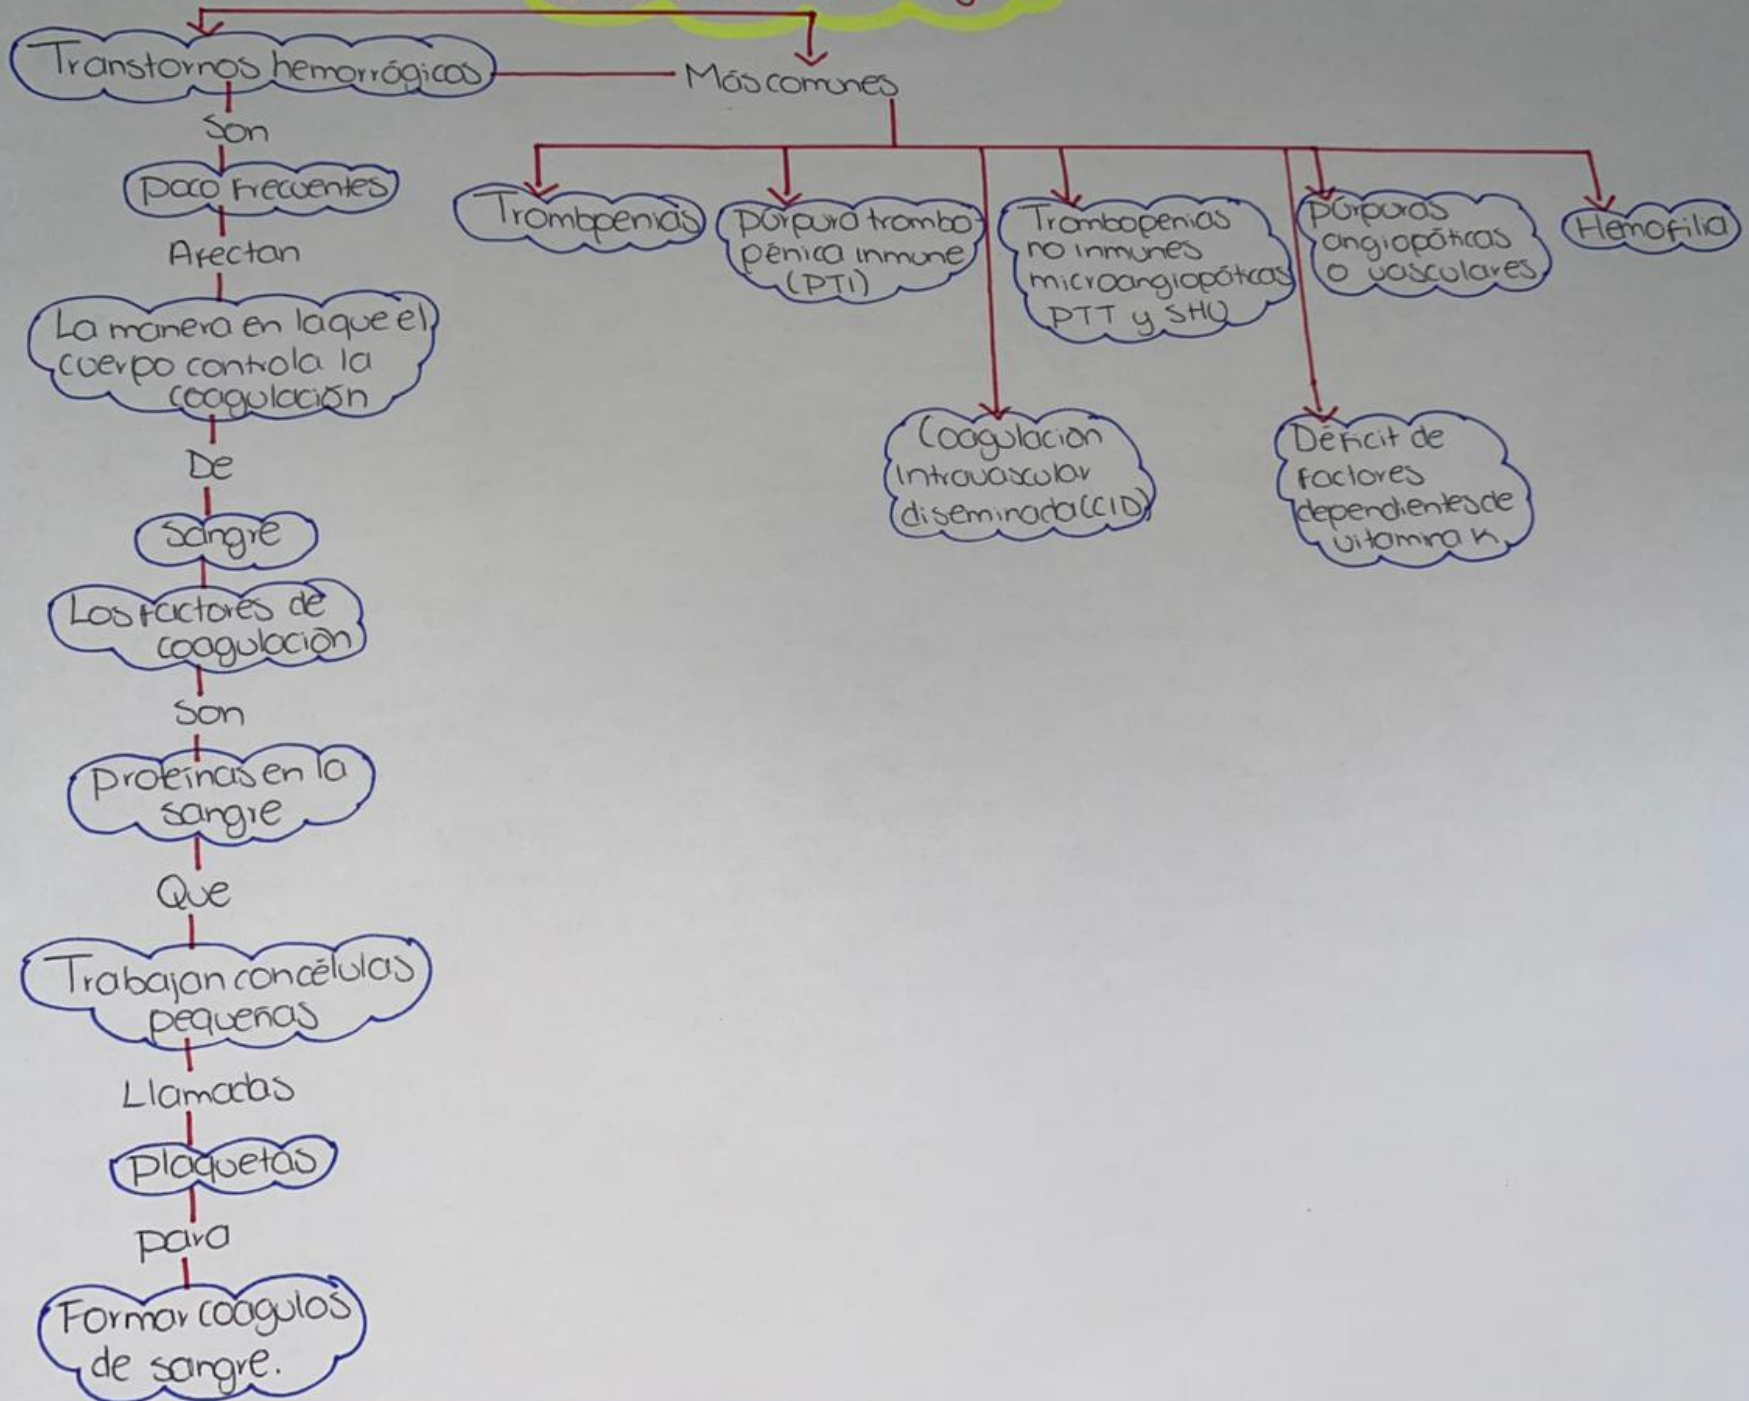 Transtornos hemorrágicos
Más comunes
Son
poco frecuentes
Afectan
La manera en la que el
cuerpo controla la
coagulación
De
sangre
Los factores de
coagulación
Son
proteínas en la
sangre
Que
Trabajan con células
pequeñas
Llamadas
plaquetas
para
Formar coágulos
de sangre.
Trombpenias
púrpura trombo-
pénica inmune
(PTI)
Trombopenias
no inmunes
microangiopáticas
PTT y SHU
púrpuras
angiopáticas
o vasculares
Hemofilia
Coagulación
Intravascular
diseminada (CID)
Déficit de
factores
dependientes de
vitamina K